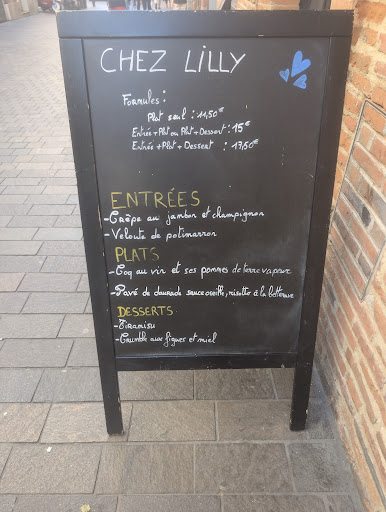 CHEZ LILLY
Formules :
Plat seul : 11,50€
Entrée + Plat ou Plat + Dessert : 15€
Entrée + Plat + Dessert : 17,50€
ENTRÉES
- Crêpe au jambon et champignon
- Veloute de potimarron
PLATS
- Coq au vin et ses pommes de terre vapeur
- Pavé de daurade sauce oseille, risotto à la betterave
DESSERTS
- Tiramisu
- Crumble aux figues et miel